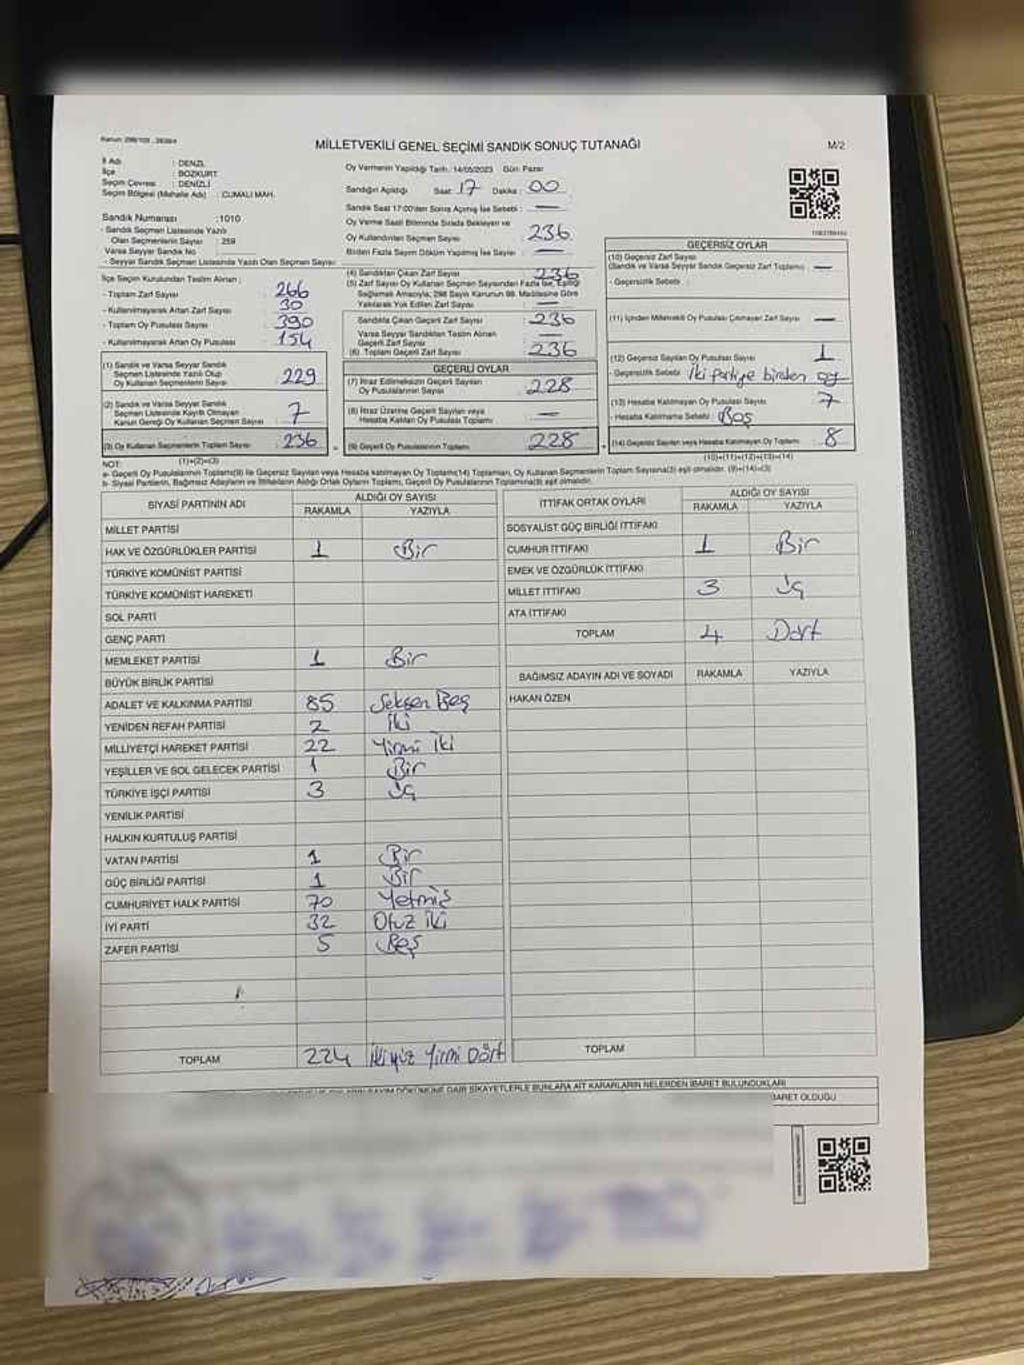 MİLLETVEKİLİ GENEL SEÇİMİ SANDIK SONUÇ TUTANAĞI
M/2
İl Adı : DENZL
İlçe : BOZKURT
Seçim Çevresi : DENİZLİ
Seçim Bölgesi (Mahalle Adı) : CUMALI MAH.
Sandık Numarası :1010
- Sandık Seçmen Listesinde Yazılı
Olan Seçmenlerin Sayısı : 259
Varsa Seyyar Sandık No :
- Seyyar Sandık Seçmen Listesinde Yazılı Olan Seçmen Sayısı:
İlçe Seçim Kurulundan Teslim Alınan ;
- Toplam Zarf Sayısı : 266
- Kullanılmayarak Artan Zarf Sayısı : 30
- Toplam Oy Pusulası Sayısı : 390
- Kullanılmayarak Artan Oy Pusulası : 154
(1) Sandık ve Varsa Seyyar Sandık
Seçmen Listesinde Yazılı Olup
Oy Kullanan Seçmenlerin Sayısı : 229
(2) Sandık ve Varsa Seyyar Sandık
Seçmen Listesinde Kayıtlı Olmayan
Kanun Gereği Oy Kullanan Seçmen Sayısı : 7
(3) Oy Kullanan Seçmenlerin Toplam Sayısı : 236
(1)+(2)=(3)
Oy Vermenin Yapıldığı Tarih : 14/05/2023 Gün: Pazar
Sandığın Açıldığı Saat : 17 Dakika : 00
Sandık Saat 17:00'den Sonra Açılmış İse Sebebi : —
Oy Verme Saati Bitiminde Sırada Bekleyen ve
Oy Kullandırılan Seçmen Sayısı : 236
Birden Fazla Sayım Döküm Yapılmış İse Sayısı : —
(4) Sandıktan Çıkan Zarf Sayısı : 236
(5) Zarf Sayısı Oy Kullanan Seçmen Sayısından Fazla İse, Eşitliği
Sağlamak Amacıyla, 298 Sayılı Kanunun 98. Maddesine Göre
Yakılarak Yok Edilen Zarf Sayısı : —
Sandıkta Çıkan Geçerli Zarf Sayısı : 236
Varsa Seyyar Sandıktan Teslim Alınan
Geçerli Zarf Sayısı : —
(6) Toplam Geçerli Zarf Sayısı : 236
GEÇERLİ OYLAR
(7) İtiraz Edilmeksizin Geçerli Sayılan
Oy Pusulalarının Sayısı : 228
(8) İtiraz Üzerine Geçerli Sayılan veya
Hesaba Katılan Oy Pusulası Toplamı : —
(9) Geçerli Oy Pusulalarının Toplamı : 228
GEÇERSİZ OYLAR
(10) Geçersiz Zarf Sayısı
(Sandık ve Varsa Seyyar Sandık Geçersiz Zarf Toplamı) : —
- Geçersizlik Sebebi :
(11) İçinden Milletvekili Oy Pusulası Çıkmayan Zarf Sayısı : —
(12) Geçersiz Sayılan Oy Pusulası Sayısı : 1
- Geçersizlik Sebebi : İki partiye birden oy
(13) Hesaba Katılmayan Oy Pusulası Sayısı : 7
- Hesaba Katılmama Sebebi : Boş
(14) Geçersiz Sayılan veya Hesaba Katılmayan Oy Toplamı : 8
(10)+(11)+(12)+(13)=(14)
NOT:
a- Geçerli Oy Pusulalarının Toplamı(9) ile Geçersiz Sayılan veya Hesaba katılmayan Oy Toplamı(14) Toplamları, Oy Kullanan Seçmenlerin Toplam Sayısına(3) eşit olmalıdır. (9)+(14)=(3)
b- Siyasi Partilerin, Bağımsız Adayların ve İttifakların Aldığı Ortak Oyların Toplamı, Geçerli Oy Pusulalarının Toplamına(9) eşit olmalıdır.
SİYASİ PARTİNİN ADI ALDIĞI OY SAYISI
RAKAMLA YAZIYLA
MİLLET PARTİSİ
HAK VE ÖZGÜRLÜKLER PARTİSİ 1 Bir
TÜRKİYE KOMÜNİST PARTİSİ
TÜRKİYE KOMÜNİST HAREKETİ
SOL PARTİ
GENÇ PARTİ
MEMLEKET PARTİSİ 1 Bir
BÜYÜK BİRLİK PARTİSİ
ADALET VE KALKINMA PARTİSİ 85 Seksen Beş
YENİDEN REFAH PARTİSİ 2 İki
MİLLİYETÇİ HAREKET PARTİSİ 22 Yirmi İki
YEŞİLLER VE SOL GELECEK PARTİSİ 1 Bir
TÜRKİYE İŞÇİ PARTİSİ 3 Üç
YENİLİK PARTİSİ
HALKIN KURTULUŞ PARTİSİ
VATAN PARTİSİ 1 Bir
GÜÇ BİRLİĞİ PARTİSİ 1 Bir
CUMHURİYET HALK PARTİSİ 70 Yetmiş
İYİ PARTİ 32 Otuz İki
ZAFER PARTİSİ 5 Beş
TOPLAM 224 İkiyüz Yirmi Dört
İTTİFAK ORTAK OYLARI ALDIĞI OY SAYISI
RAKAMLA YAZIYLA
SOSYALİST GÜÇ BİRLİĞİ İTTİFAKI
CUMHUR İTTİFAKI 1 Bir
EMEK VE ÖZGÜRLÜK İTTİFAKI
MİLLET İTTİFAKI 3 Üç
ATA İTTİFAKI
TOPLAM 4 Dört
BAĞIMSIZ ADAYIN ADI VE SOYADI RAKAMLA YAZIYLA
HAKAN ÖZEN
TOPLAM
SAYIM DÖKÜMÜNE DAİR ŞİKAYETLERLE BUNLARA AİT KARARLARIN NELERDEN İBARET BULUNDUKLARI
OLDUĞU